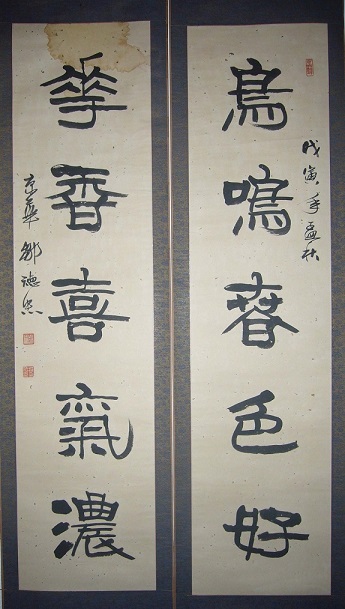 戊寅年孟秋
鳥鳴春色好
華香喜氣濃
京華鄒德忠